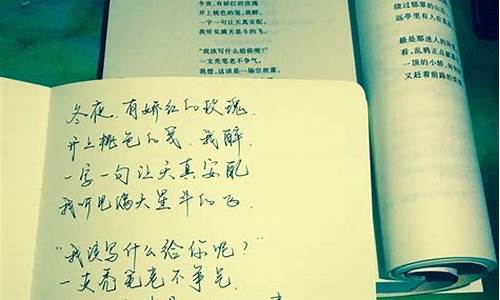 冬夜，有娇红的玫瑰
开上桃色的笺，我醉，
一字一句让天真安配，
我听见满天星斗的飞。
"我该写什么给你呢？"
一支秃笔老不争气，
我想，这该是一场空欢喜，
绕过郁翠的山
远亭里有人在
最是那迷人的
看，乱鸦正点破
一顶的小轿，
又赶着前路的
冬夜，有娇红的玫瑰，
开上桃色的笺，我醉，
一字一句让天真安配
我听见满天星斗的飞
"我该写什么给你呢？"
一支秃笔老不争气，